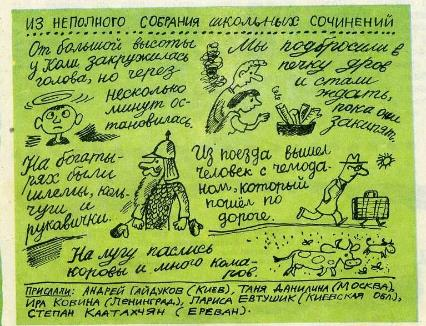 ИЗ НЕПОЛНОГО СОБРАНИЯ ШКОЛЬНЫХ СОЧИНЕНИЙ
От большой высоты
у Коли закружилась
голова, но через
несколько
минут ос-
тановилась.
Мы подбросили в
печку дров
и стали
ждать,
пока они
закипят.
На богаты-
рях были
шлемы, коль-
чуги и
рукавички.
Из поезда вышел
человек с чемода-
ном, который
пошёл по
дороге.
На лугу паслись
коровы и много кома-
ров.
ПРИСЛАЛИ: АНДРЕЙ ГАЙДУКОВ (КИЕВ), ТАНЯ ДАНИЛИНА (МОСКВА),
ИРА КОВИНА (ЛЕНИНГРАД), ЛАРИСА ЕВТУШИК (КИЕВСКАЯ ОБЛ),
СТЕПАН КААТАХЧЯН (ЕРЕВАН).